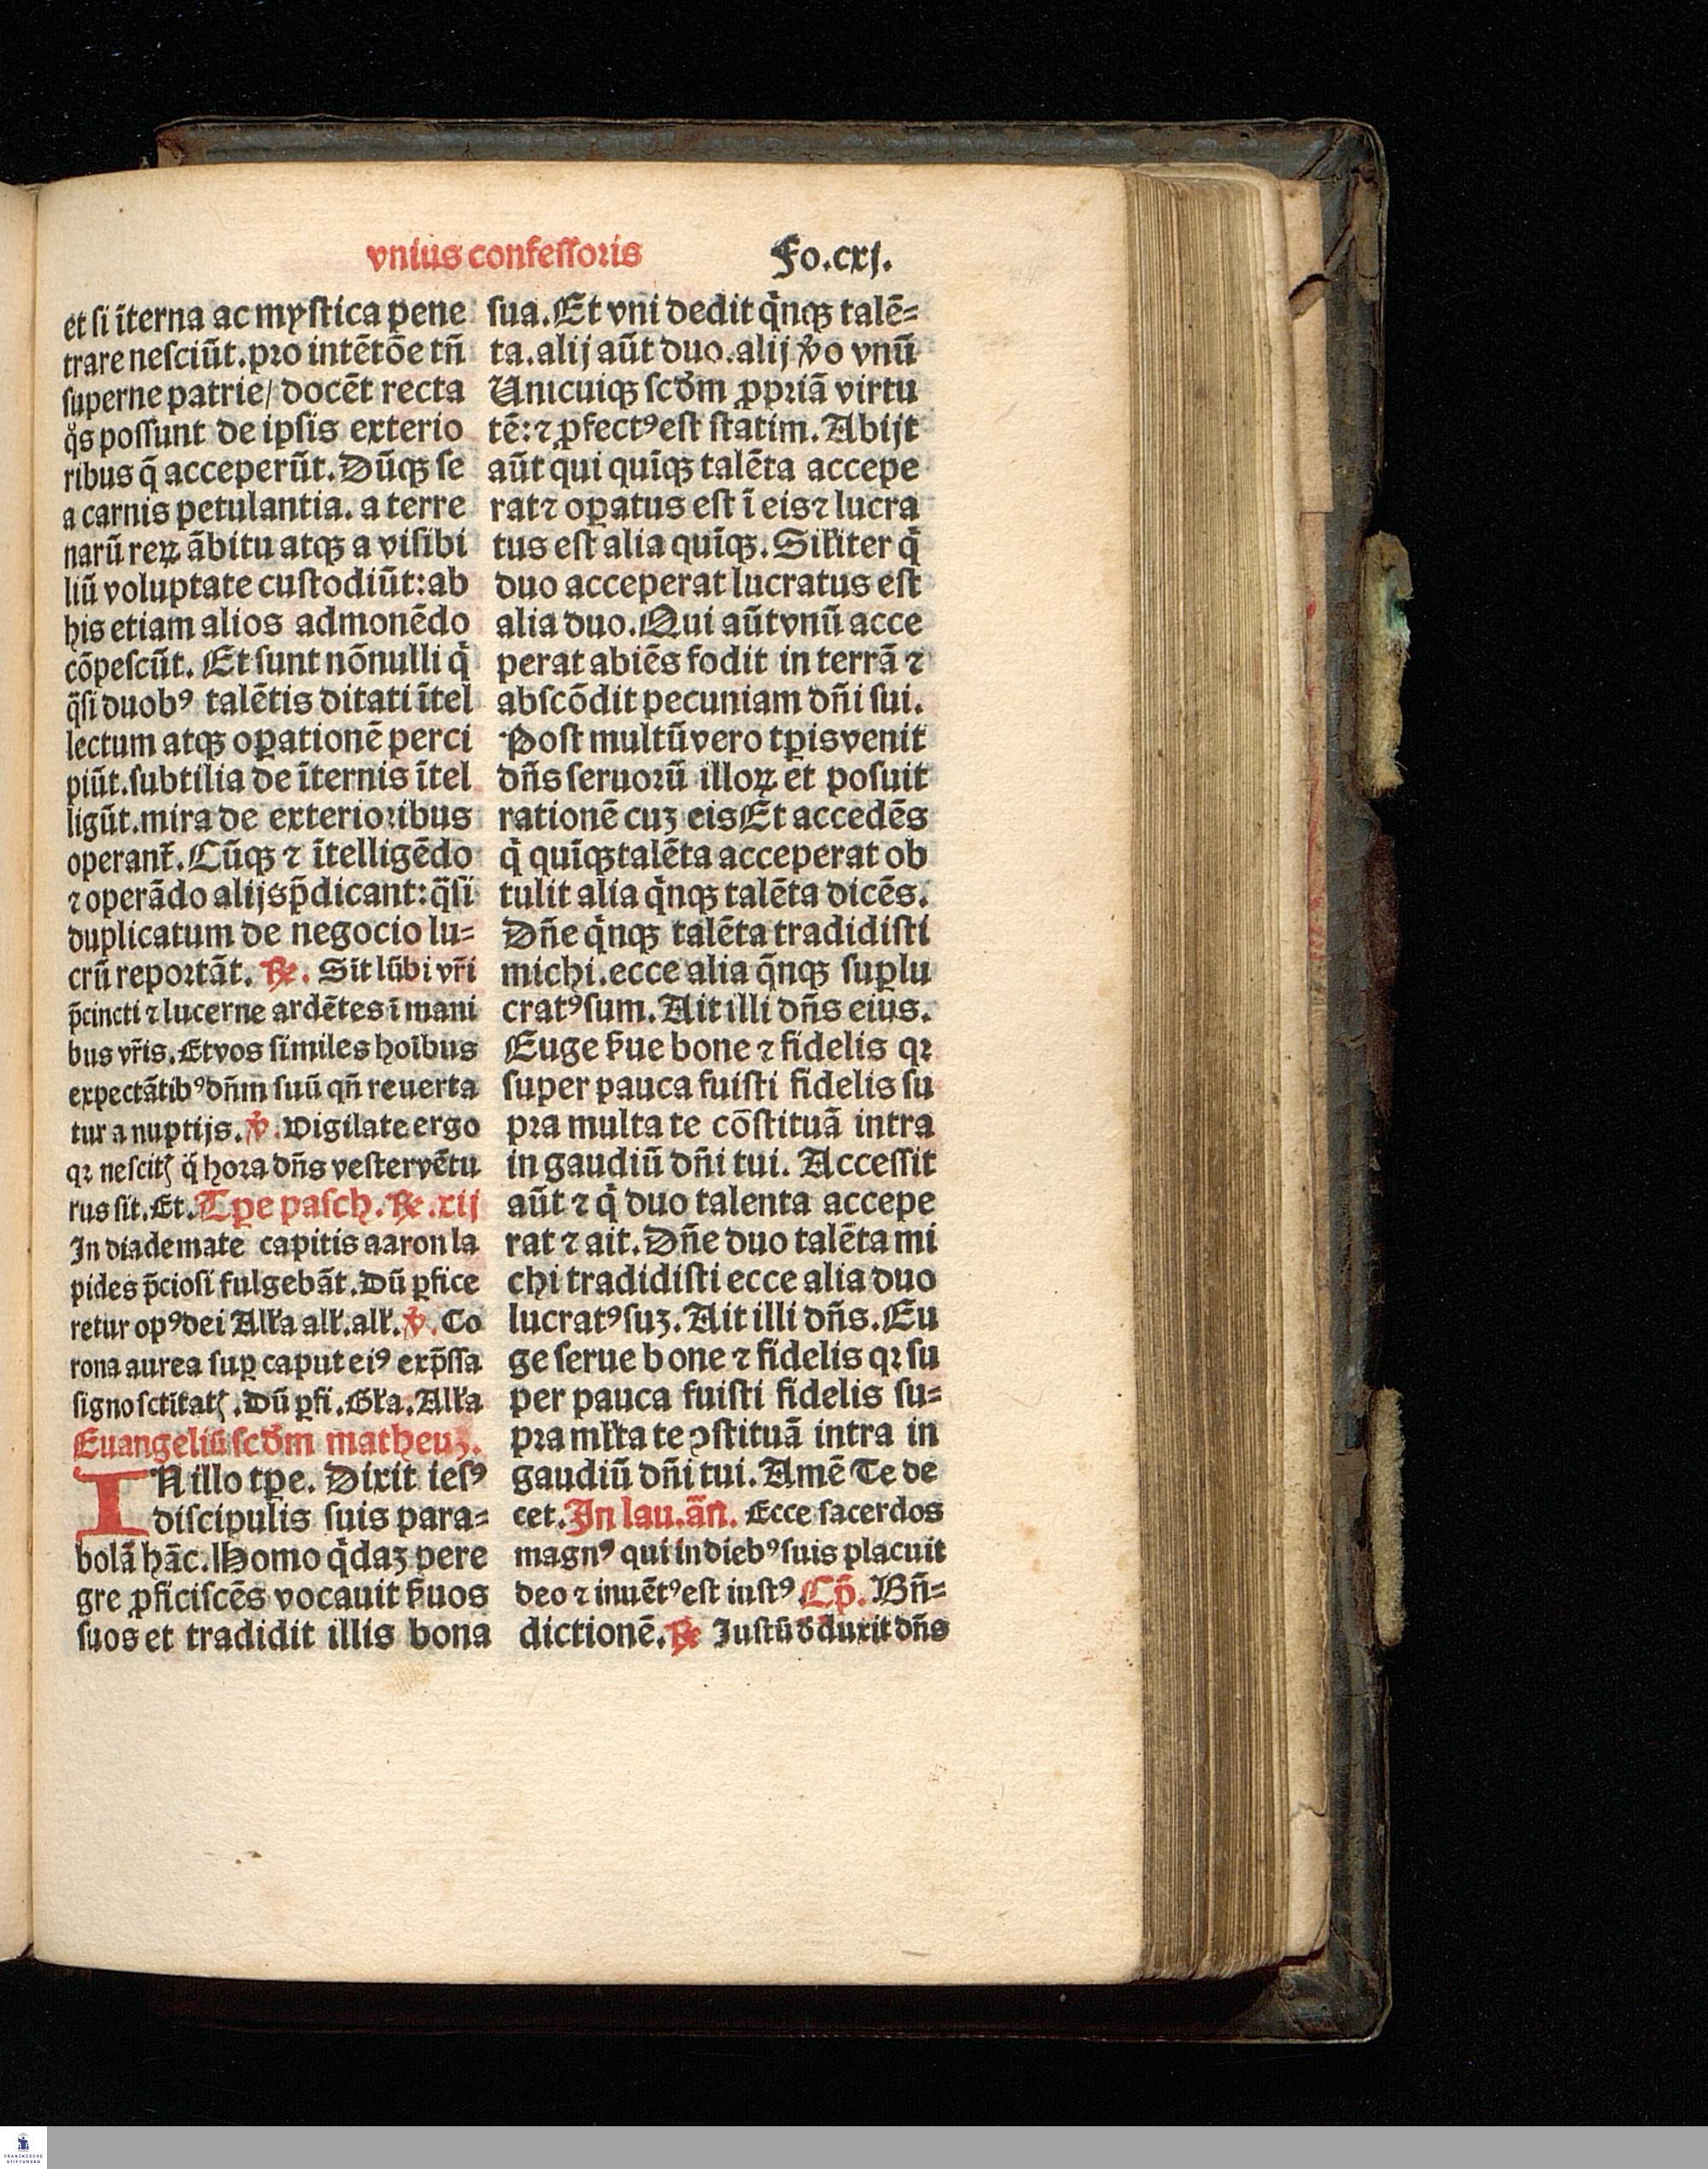 vnius confessoris Fo.cxj.
et si īterna ac mystica pene
trare nesciūt. pro intētōe tn̄
superne patrie/ docēt recta
q̊s possunt de ipsis exterio
ribus q̄ acceperūt. Dūqꝫ se
a carnis petulantia. a terre
narū reꝝ ābitu atqꝫ a visibi
liū voluptate custodiūt: ab
his etiam alios admonēdo
cōpescūt. Et sunt nōnulli q̇
q̈si duobꝰ talētis ditati ītel
lectum atqꝫ oꝑationē perci
piūt. subtilia de īternis ītel
ligūt. mira de exterioribus
operant̄. Cūqꝫ ⁊ ītelligēdo
⁊ operādo alijs p̄dicant: q̈si
duplicatum de negocio lu=
crū reportāt. ℟. Sīt lūbi vr̄i
p̄cincti ⁊ lucerne ardētes ī mani
bus vr̄is. Et vos similes hoībus
expectātibꝰ dn̄m suū qn̄ reuerta
tur a nuptijs. ℣. Vigilate ergo
qꝛ nescitꝭ q̈ hora dn̄s vester vētu
rus sit. Et. Tꝑe pasch. ℟. xij
In diademate capitis aaron la
pides p̄ciosi fulgebāt. Dū ꝑfice
retur opꝰ dei Allꝉa allꝉ. allꝉ. ℣. Co
rona aurea suꝑ caput eiꝰ exp̄ssa
signo sctītatꝭ. Dū ꝑfi. Gꝉa. Allꝉa
Euangeliū scd̄m matheuꝫ.
IN illo tꝑe. Dixit iesꝰ
discipulis suis para=
bolā hāc. Homo q̇daꝫ pere
gre ꝓficiscēs vocauit s̄uos
suos et tradidit illis bona
sua. Et vni dedit q̇nqꝫ talē=
ta. alij aūt duo. alij v̊o vnū
Unicuiqꝫ scd̄m ꝓpriā virtu
tē: ⁊ ꝓfectꝰ est statim. Abijt
aūt qui quīqꝫ talēta accepe
rat ⁊ oꝑatus est ī eis ⁊ lucra
tus est alia quīqꝫ. Silꝉiter q̇
duo acceperat lucratus est
alia duo. Qui aūt vnū acce
perat abiēs fodit in terrā ⁊
abscōdit pecuniam dn̄i sui.
Post multū vero tꝑis venit
dn̄s seruorū illoꝝ et posuit
rationē cuꝫ eis Et accedēs
q̇ quīqꝫ talēta acceperat ob
tulit alia q̇nqꝫ talēta dicēs.
Dn̄e q̇nqꝫ talēta tradidisti
michi. ecce alia q̇nqꝫ suꝑlu
cratꝰ sum. Ait illi dn̄s eius.
Euge s̄ue bone ⁊ fidelis qꝛ
super pauca fuisti fidelis su
pra multa te cōstituā intra
in gaudiū dn̄i tui. Accessit
aūt ⁊ q̇ duo talenta accepe
rat ⁊ ait. Dn̄e duo talēta mi
chi tradidisti ecce alia duo
lucratꝰ suꝫ. Ait illi dn̄s. Eu
ge serue bone ⁊ fidelis qꝛ su
per pauca fuisti fidelis su=
pra mlꝉta te ꝯstituā intra in
gaudiū dn̄i tui. Amē Te de
cet. In lau. ān̄. Ecce sacerdos
magnꝰ qui in diebꝰ suis placuit
deo ⁊ inuētꝰ est iustꝰ Cp̄. Bn̄=
dictionē. ℟ Iustū d̄duxit dn̄s
FRANCKESCHE
STIFTUNGEN